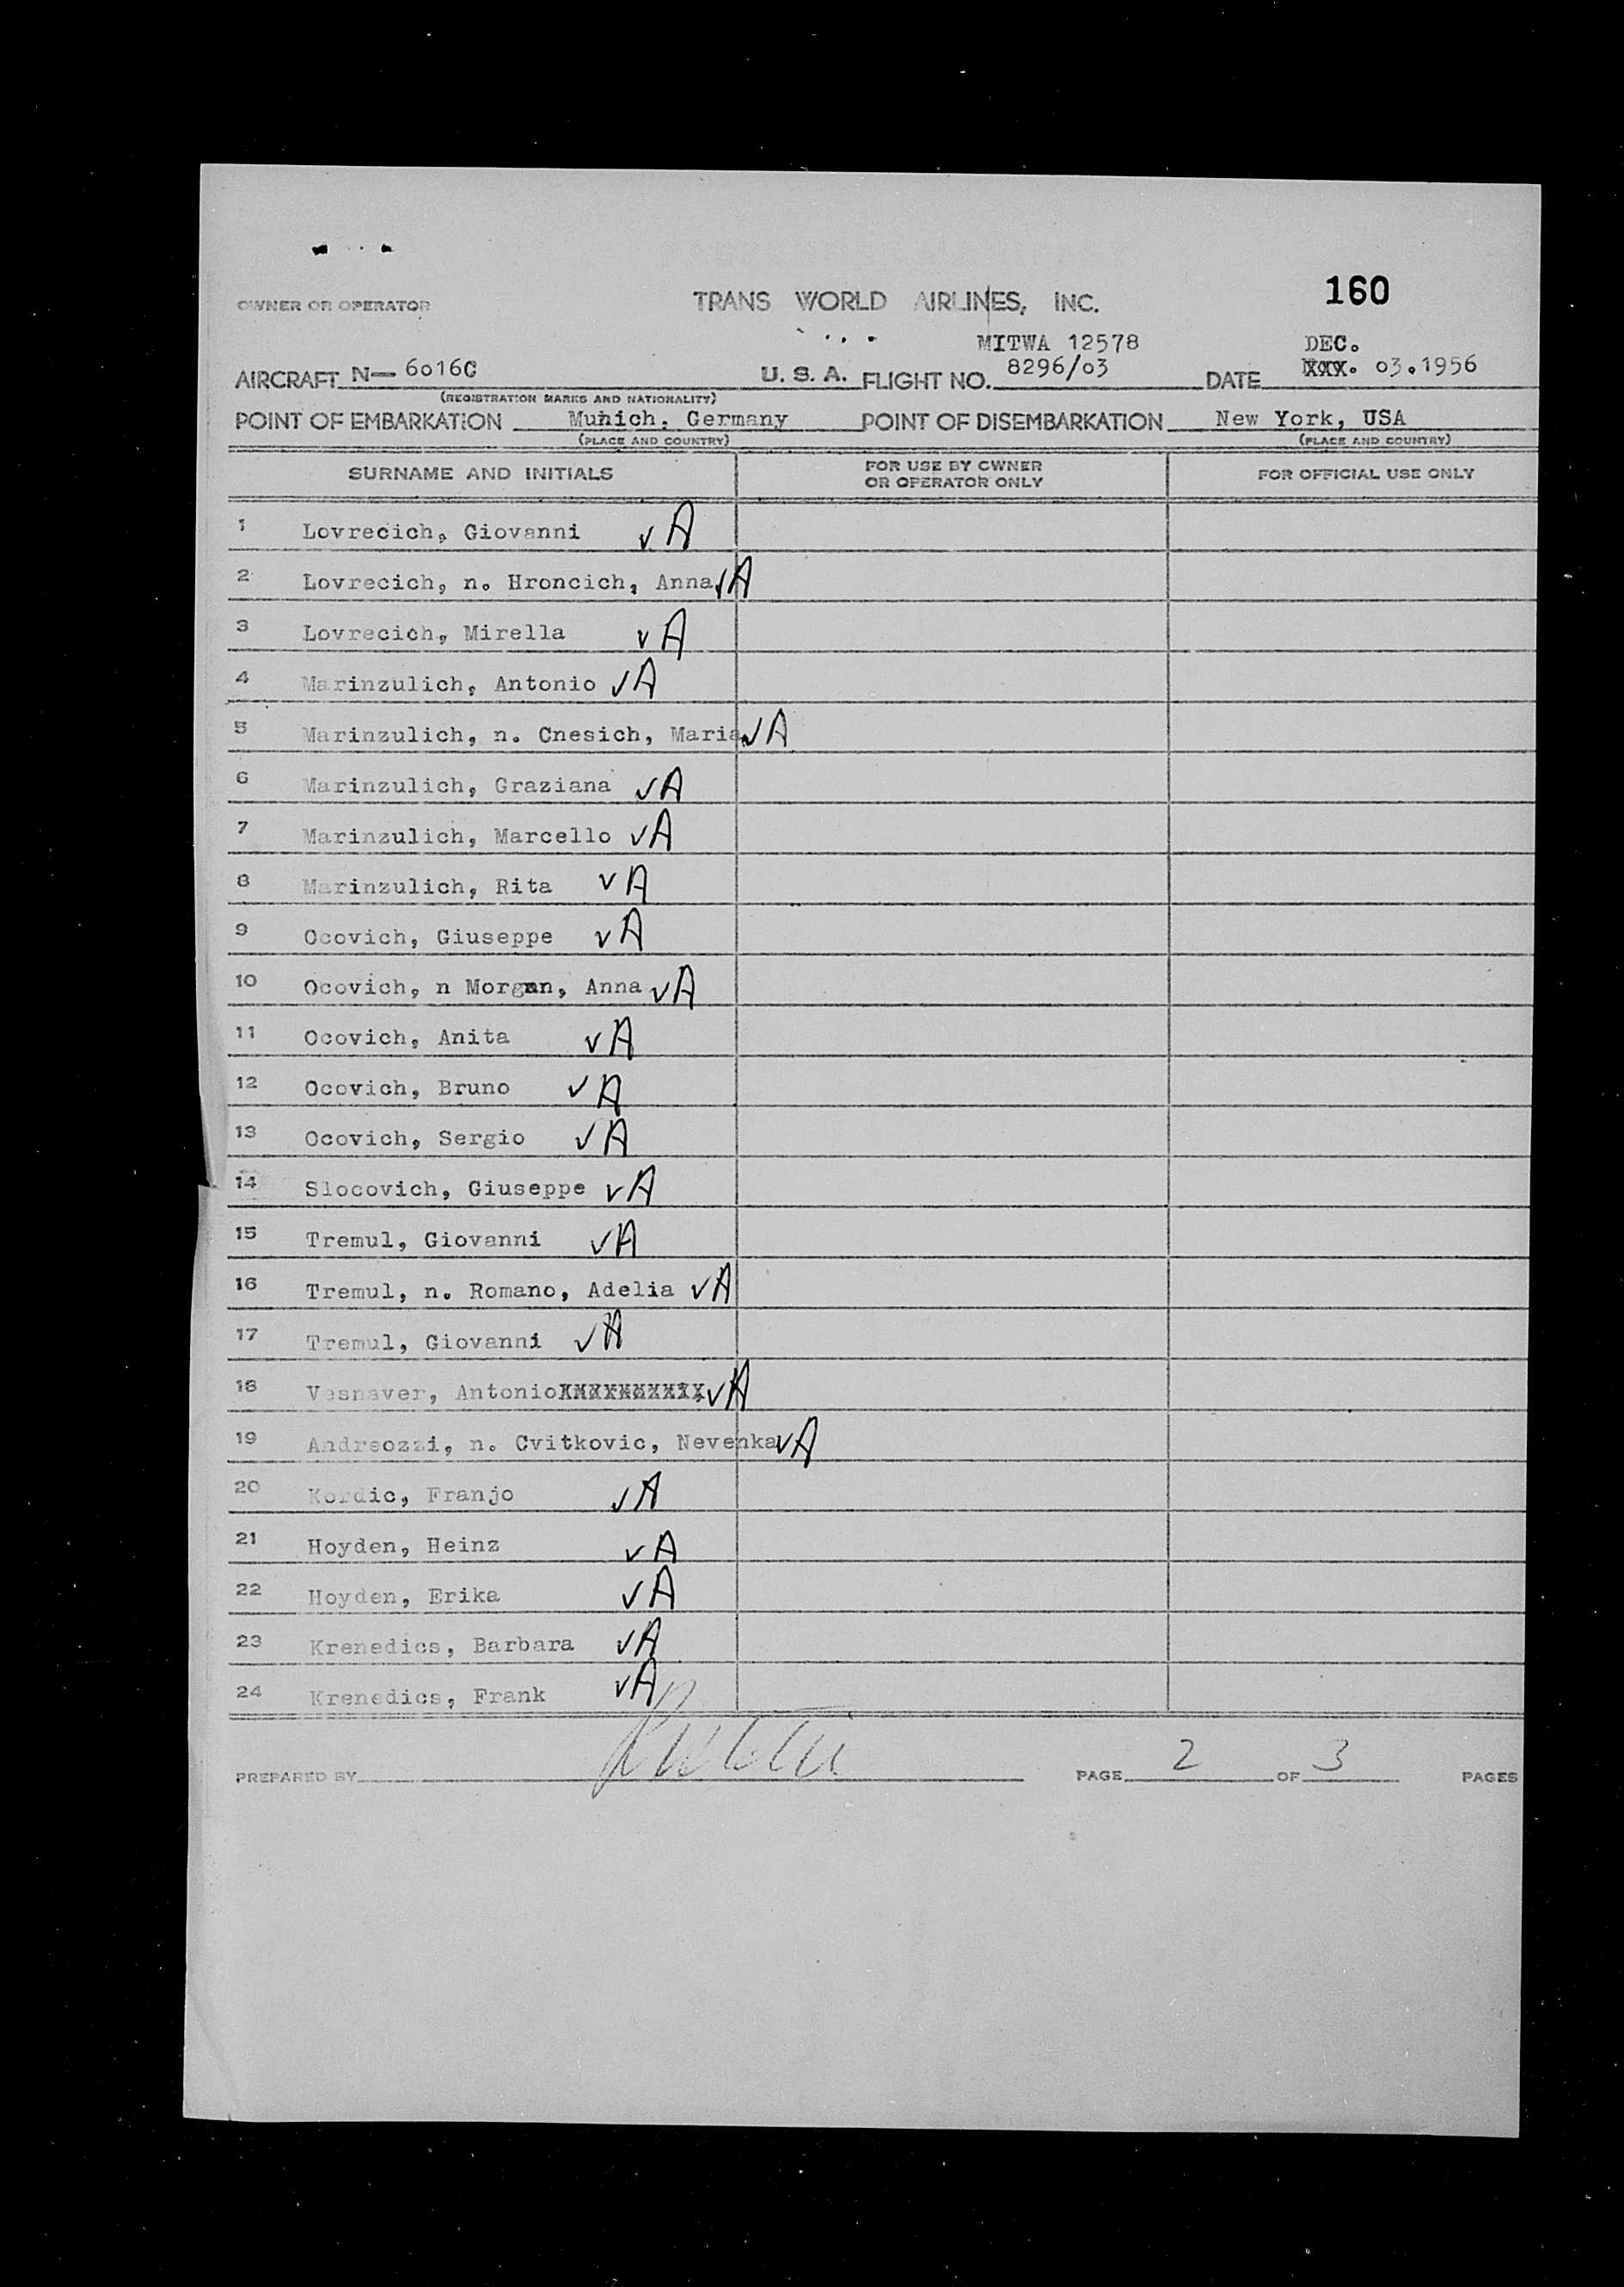 160
OWNER OR OPERATOR TRANS WORLD AIRLINES, INC.
MITWA 12578 DEC.
AIRCRAFT N— 6016C U. S. A. FLIGHT NO. 8296/03 DATE XXX. 03.1956
(REGISTRATION MARKS AND NATIONALITY)
POINT OF EMBARKATION Munich, Germany POINT OF DISEMBARKATION New York, USA
(PLACE AND COUNTRY) (PLACE AND COUNTRY)
SURNAME AND INITIALS FOR USE BY OWNER OR OPERATOR ONLY FOR OFFICIAL USE ONLY
1 Lovrecich, Giovanni √ A
2 Lovrecich, n. Hroncich, Anna √ A
3 Lovrecich, Mirella √ A
4 Marinzulich, Antonio √ A
5 Marinzulich, n. Cnesich, Maria √ A
6 Marinzulich, Graziana √ A
7 Marinzulich, Marcello √ A
8 Marinzulich, Rita √ A
9 Ocovich, Giuseppe √ A
10 Ocovich, n Morgan, Anna √ A
11 Ocovich, Anita √ A
12 Ocovich, Bruno √ A
13 Ocovich, Sergio √ A
14 Slocovich, Giuseppe √ A
15 Tremul, Giovanni √ A
16 Tremul, n. Romano, Adelia √ A
17 Tremul, Giovanni √ A
18 Vesnaver, Antonio √ A
19 Andreozzi, n. Cvitkovic, Nevenka √ A
20 Kordic, Franjo √ A
21 Hoyden, Heinz √ A
22 Hoyden, Erika √ A
23 Krenedics, Barbara √ A
24 Krenedics, Frank √ A
PREPARED BY PAGE 2 OF 3 PAGES